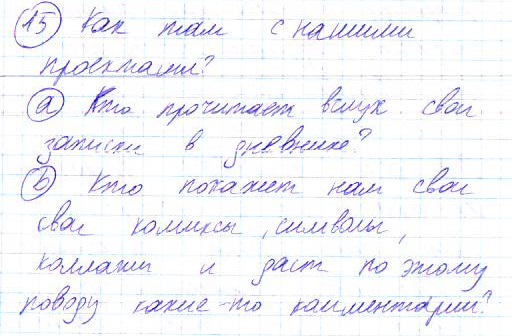 15 Как там с нашими
проектами?
а Кто прочитает вслух свои
записки в дневнике?
b Кто покажет нам свои
свои комиксы, символы,
коллажи и даст по этому
поводу какие-то комментарии?